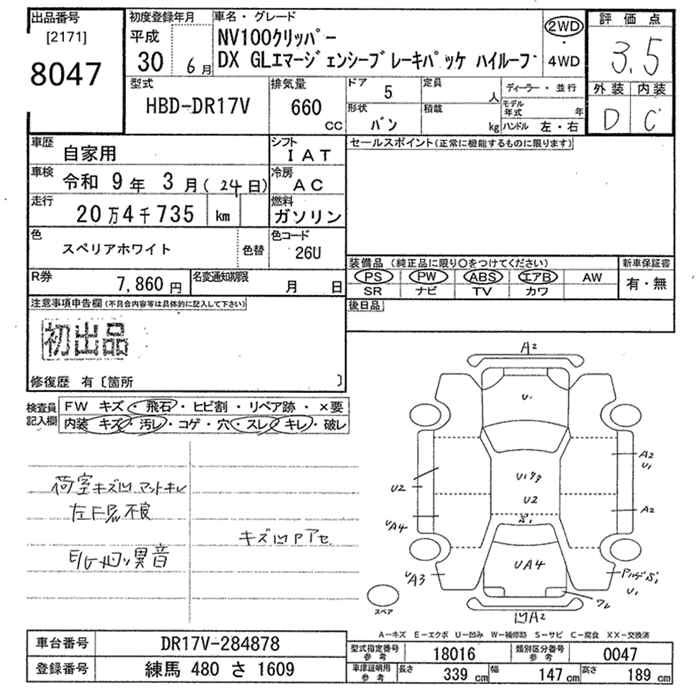 出品番号
[2171]
8047
初度登録年月
平成
30 6月
車名・グレード
NV100クリッパー
DX GLエマージェンシーブレーキパッケ ハイルーフ
2WD
・
4WD
評価点
3.5
外装 内装
D C
型式
HBD-DR17V
排気量
660
CC
ドア 5
定員 人
形状 バン
積載 kg
ディーラー・並行
モデル年式 年
ハンドル 左・右
車歴 自家用
シフト IAT
車検 令和 9年 3月(24日)
冷房 AC
走行 20万4千735 km
燃料 ガソリン
色 スペリアホワイト
色替
色コード 26U
R券 7,860円
名変通知期限 月 日
セールスポイント(正常に機能するものに限ります)
装備品 (純正品に限り○をつけてください)
PS PW ABS エアB AW
SR ナビ TV カワ
新車保証書
有・無
後日品
注意事項申告欄(不具合内容等は具体的に記入して下さい)
初出品
修復歴 有〔箇所 〕
検査員記入欄
FW キズ・飛石・ヒビ割・リペア跡・×要
内装 キズ・汚レ・コゲ・穴・スレ・キレ・破レ
荷室キズ凹 マットキレ
異音
キズ凹
A2
U
A2
U1
U2
U2
A2
UA4
S1
UA4
UA3
U1
凹A2
スペア
A-キズ E-エクボ U-凹み W-補修跡 S-サビ C-腐食 XX-交換済
車台番号 DR17V-284878
登録番号 練馬 480 さ 1609
型式指定番号 参考 18016
類別区分番号 参考 0047
車庫証明用 参考 長さ 339cm 幅 147cm 高さ 189cm